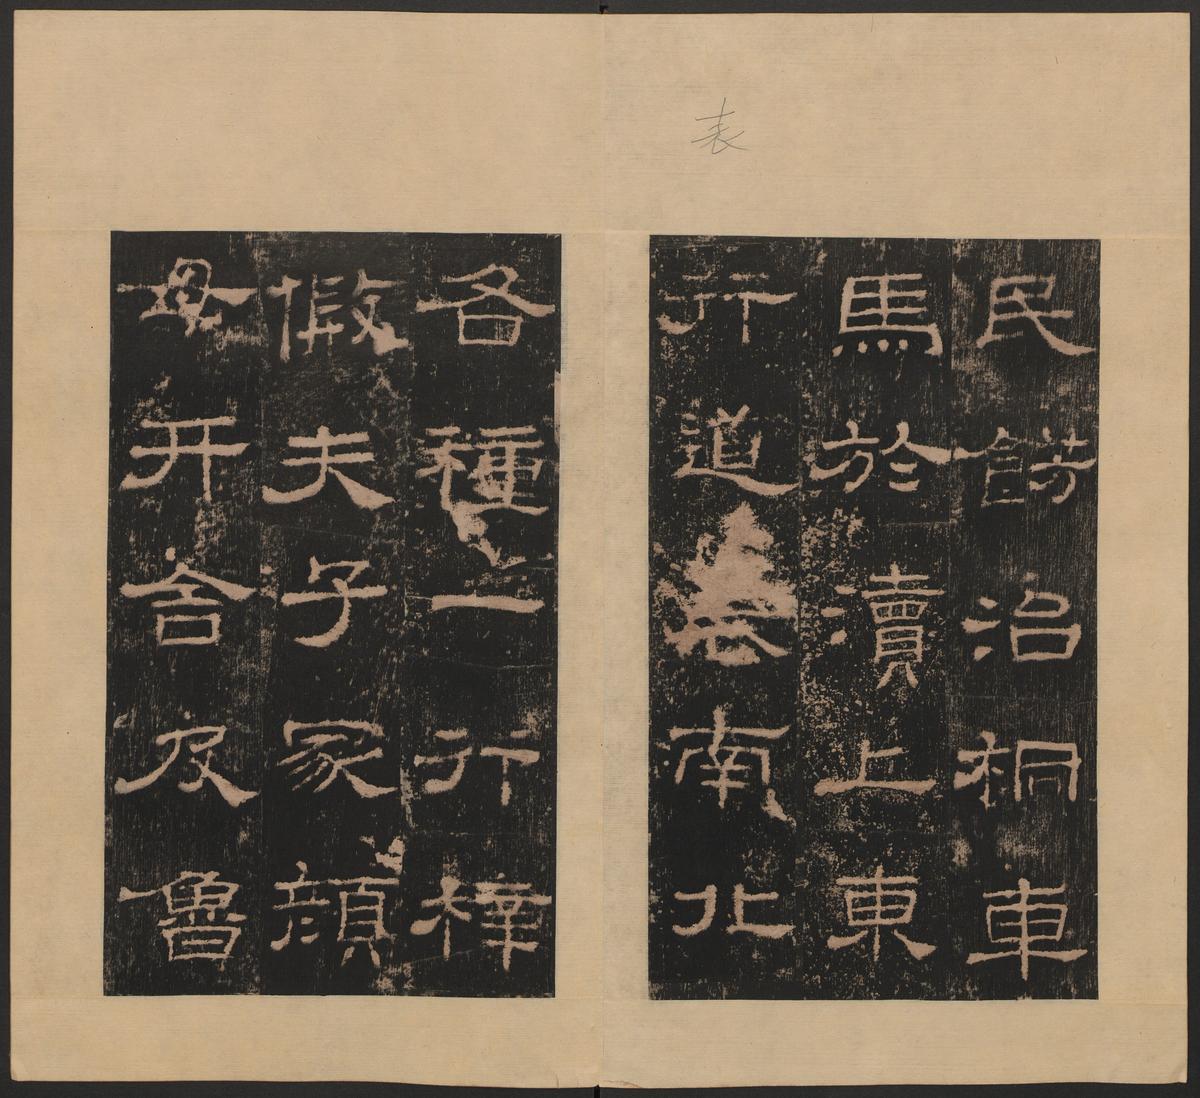 表
民餝治桐車
馬於瀆上東
行道表南北
各種一行梓
假夫子冢顏
母井舍及魯